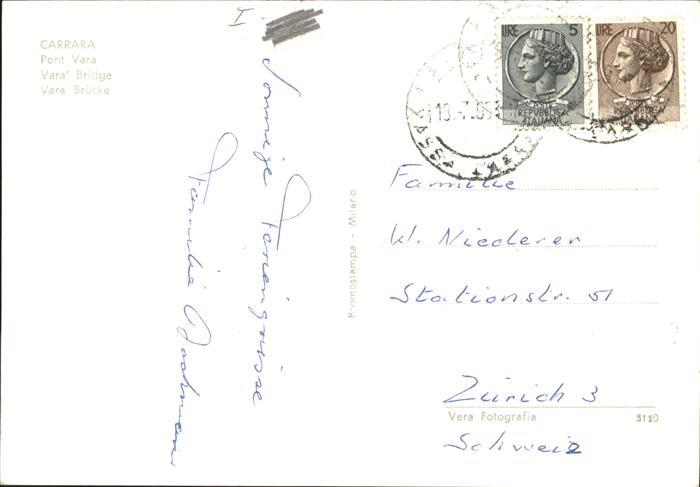 I
CARRARA
Pont Vara
Vara' Bridge
Vara Brücke
Sonnige Feriengrüsse
Familie Bachmann
Promostampa - Milano
LIRE 5
REPUBBLICA
ITALIANA
LIRE 20
REPUBBLICA
ITALIANA
Familie
W. Niederer
Stationstr. 51
Zürich 3
Vera Fotografia 5110
Schweiz